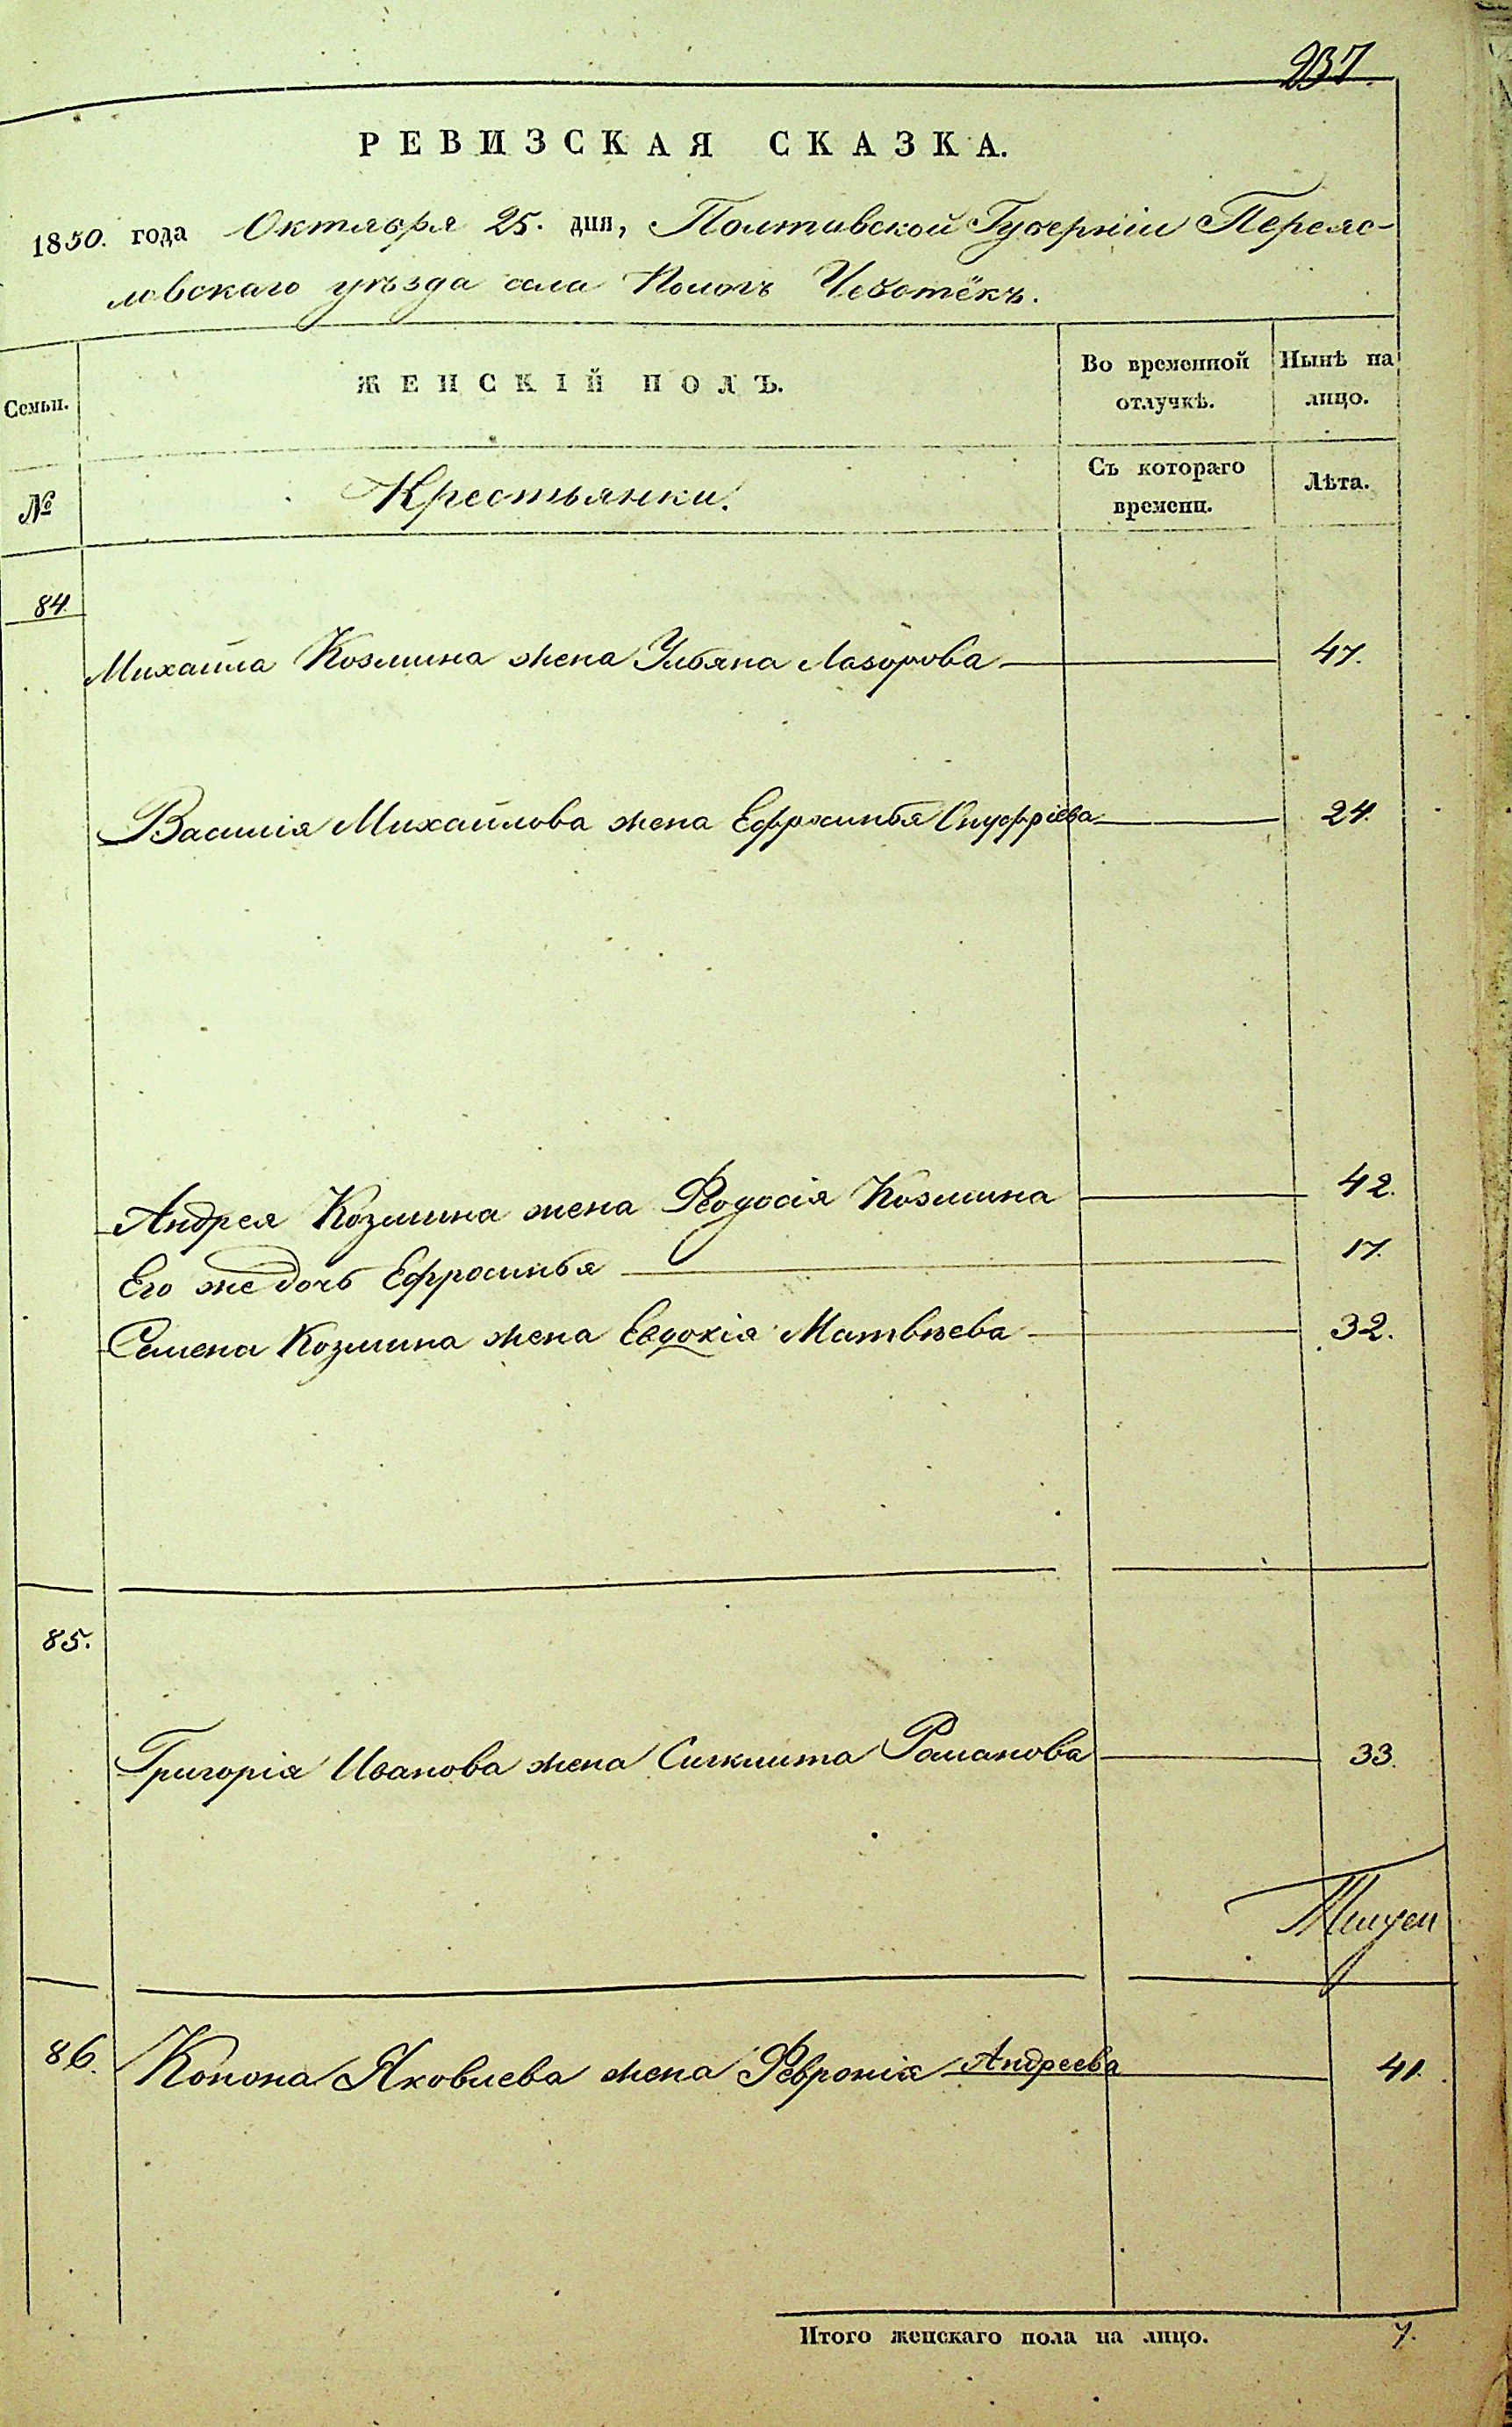 237.
РЕВИЗСКАЯ СКАЗКА.
1850. года Октября 25. дня, Полтавской Губерніи Переяс-
лавскаго уѣзда села Пологъ Чеботёкъ.
Семьи. ЖЕНСКІЙ ПОЛЪ. Во временной отлучкѣ. Нынѣ на лицо.
№ Крестьянки. Съ котораго времени. Лѣта.
84.
Михайла Козмина жена Ульяна Лазорова 47.
Василія Михайлова жена Ефросинья Онуфріева 24.
Андрея Козмина жена Феодосія Козмина 42.
Его же дочь Ефросинья 17.
Семена Козмина жена Евдокія Матвѣева 32.
85.
Григорія Иванова жена Сигклита Романова 33.
86. Конона Яковлева жена Феврónія Андреева 41.
Итого женскаго пола на лицо. 7.